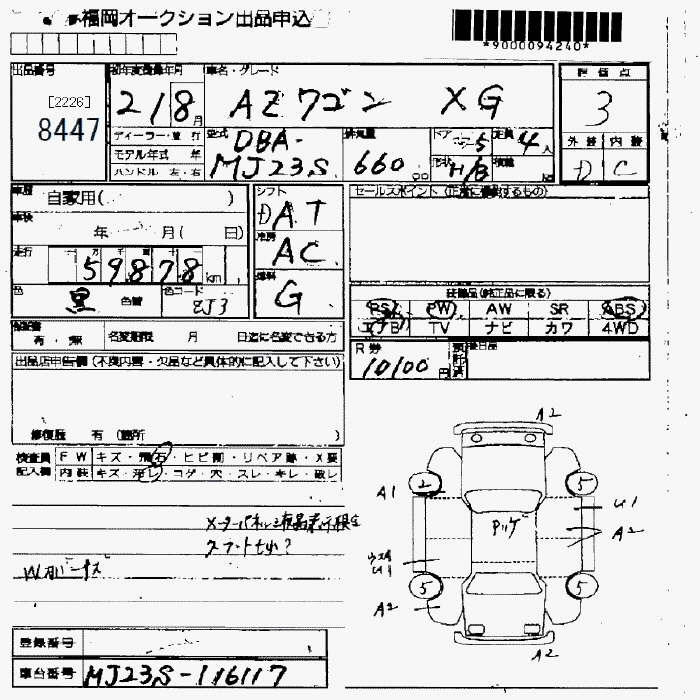 福岡オークション出品申込
*9000094240*
出品番号
[2226]
8447
初年度登録年月
21/8月
車名・グレード
AZワゴン XG
評価点
3
外装 内装
D C
ディーラー・並行
モデル年式 年
ハンドル 左・右
型式
DBA-
MJ23S
排気量
660 cc
ドア
5
定員
4人
形状
H/B
積載
車歴
自家用( )
車検
年 月( 日)
走行
59878 km
色
黒
色替
色コード
ZJ3
シフト
AT
冷房
AC
燃料
G
セールスポイント(正確に記載するもの)
装備品(純正品に限る)
PS PW AW SR ABS
エアB TV ナビ カワ 4WD
R券
10100円
後日品
保証書
有・無
名変期限 月 日迄に名変できる方
出品店申告欄(不具内容・欠品など具体的に記入して下さい)
修復歴 有(箇所 )
検査員
記入欄
FW キズ・飛石・ヒビ割・リペア跡・X要
内装 キズ・汚レ・コゲ・穴・スレ・キレ・破レ
メーターパネル液晶表示
スマートキー?
A2
A1
2
5
U1
Pルーフ
A2
U1
5
5
A2
A2
登録番号
車台番号
MJ23S-116117